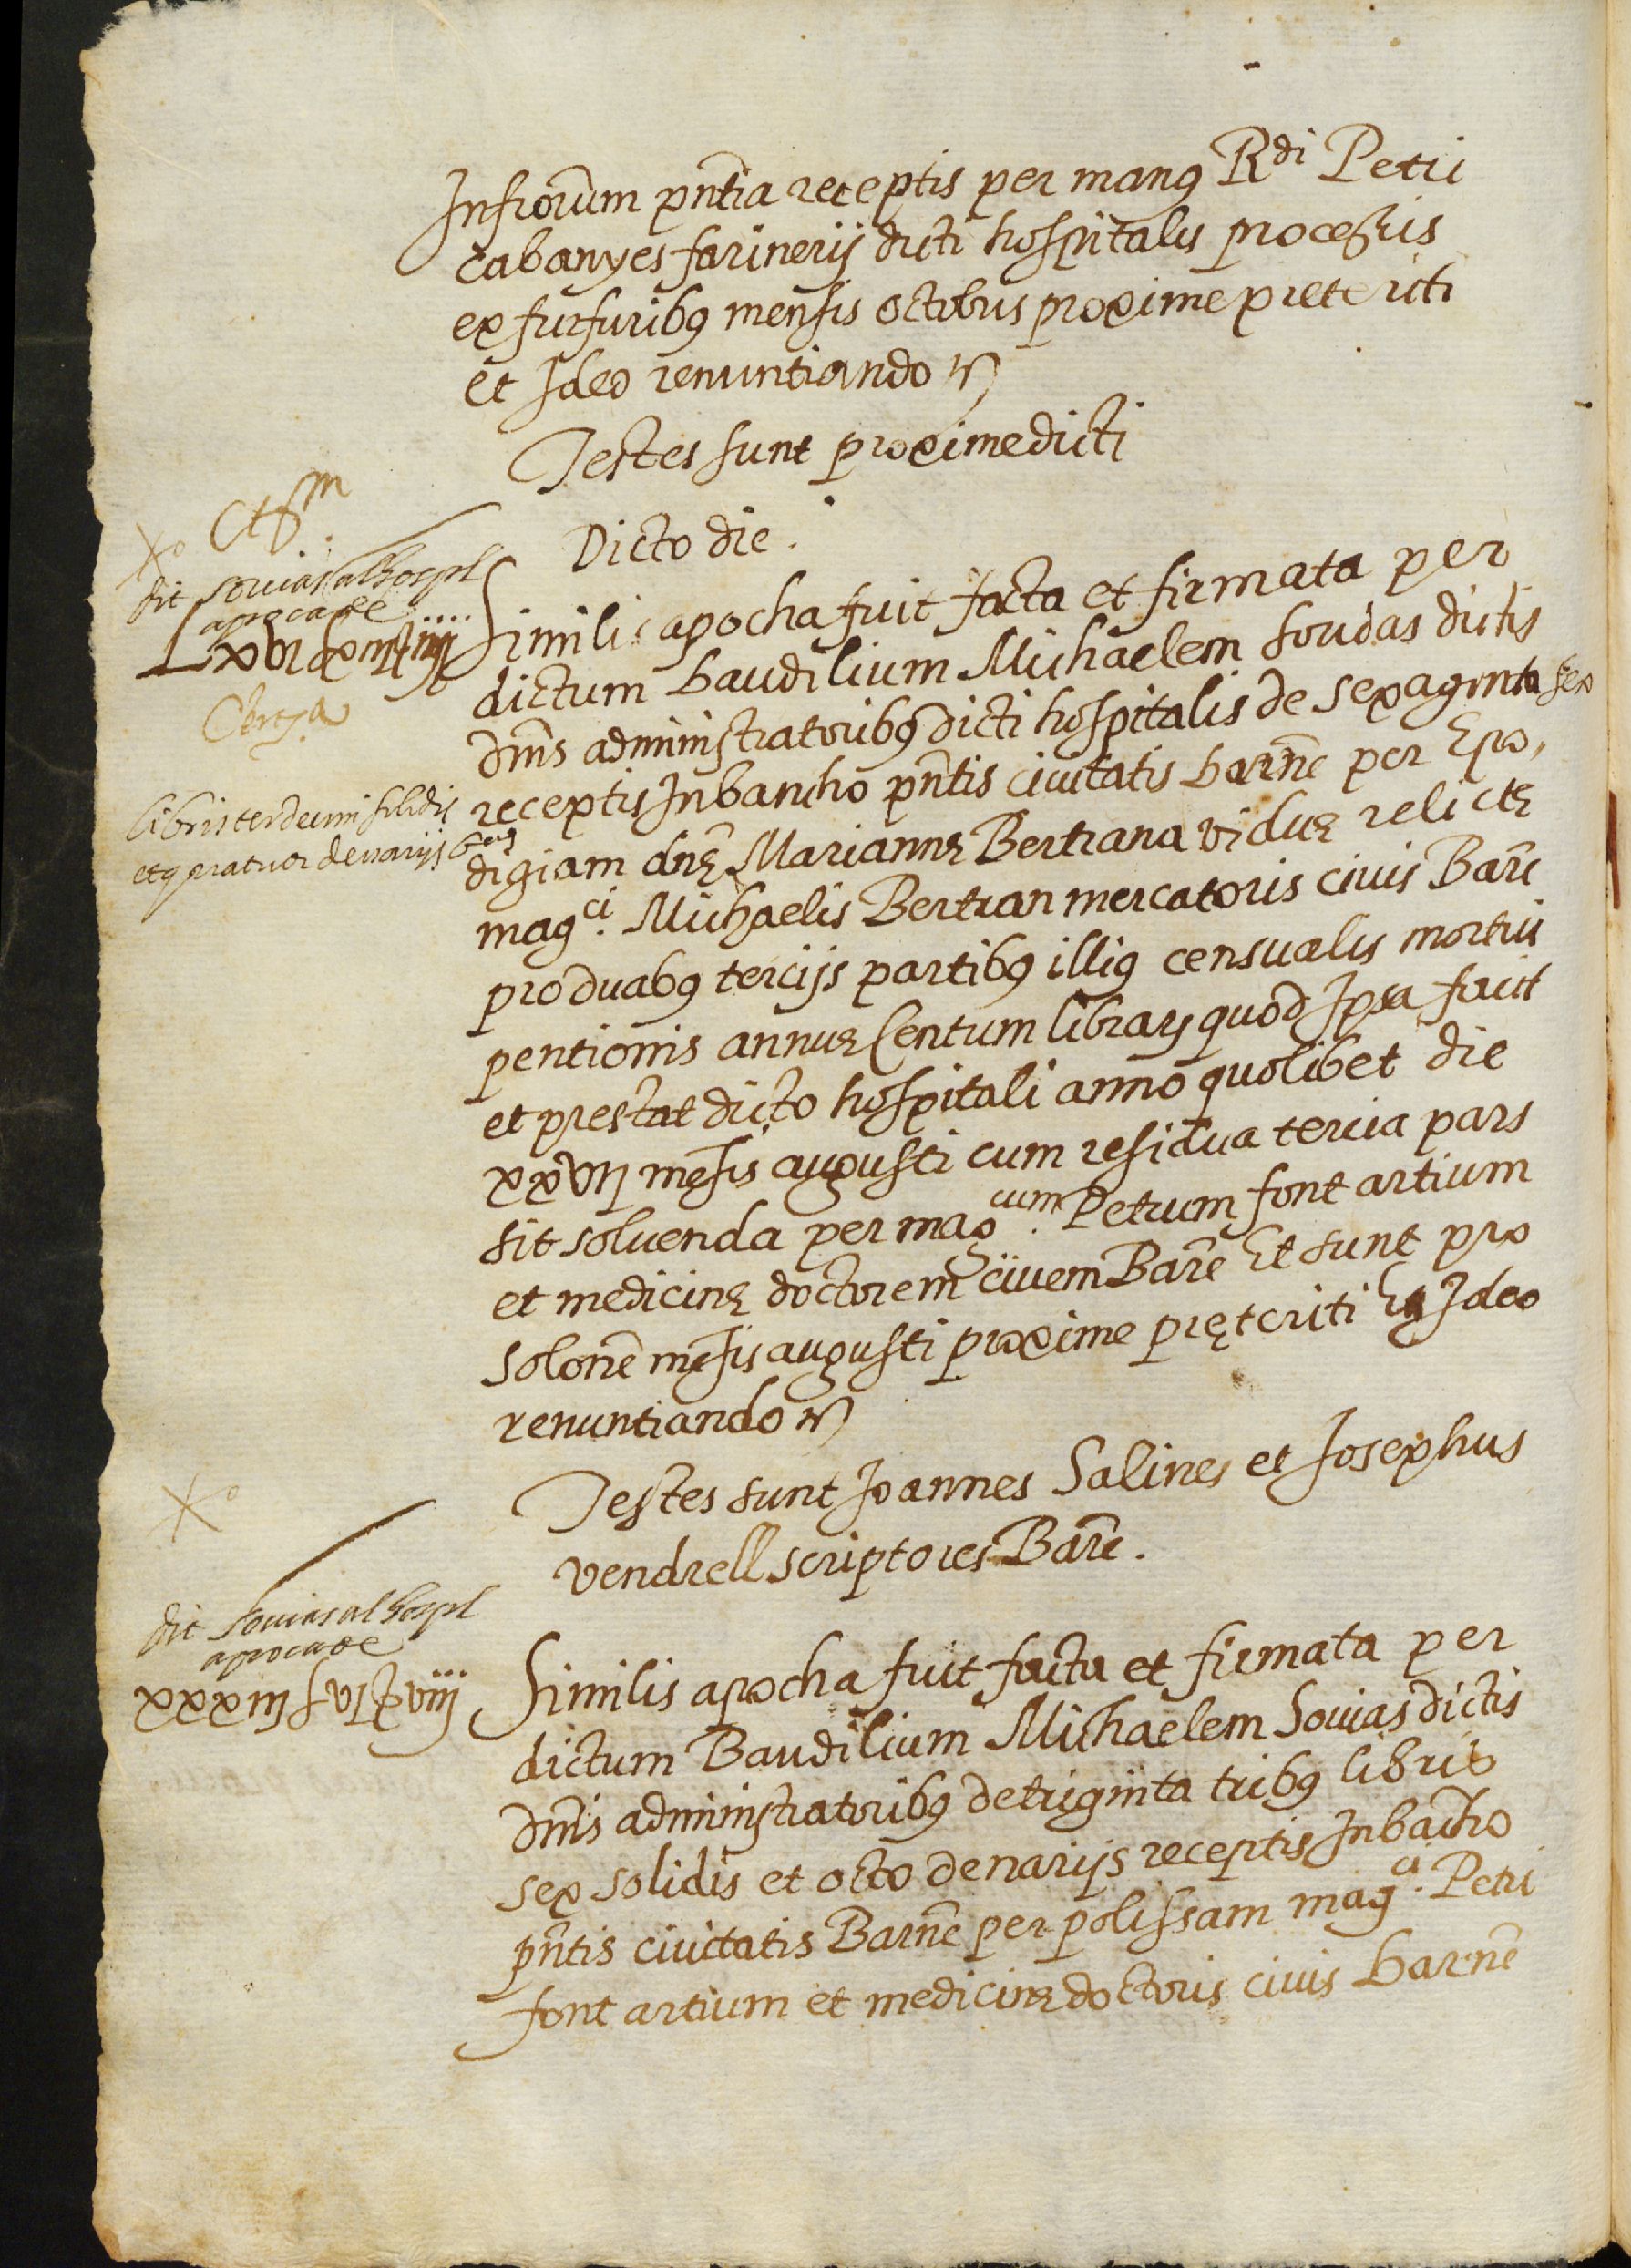 Infrorum pn̄tia receptis per manꝯ Rdi Petri
Cabanyes farinerij dicti hospitalis processis
ex furfuribꝯ mensis octobris proxime preteriti
et Ideo renuntiando
Testes sunt proxime dicti
Dicto die.
dit sovias al hospl
apoca de
Lxvi ß xiii ₰ iiii
Similis apocha fuit facta et firmata per
dictum baudilium Michaelem Sovias dictis
dnīs administratoribꝯ dicti hospitalis de sexaginta sex
libris terdecim solidis
et quatuor denarijs
receptis In bancho pn̄tis civitatis barnē per Apo,
digiam dnę̄ Mariannę Bertrana viduę relictę
magci. Michaelis Bertran mercatoris civis Barē
pro duabꝯ tercijs partibꝯ illiꝯ censualis mortui
pentionis annuę Centum libraꝝ quod Ipsa facit
et prestat dicto hospitali anno quolibet die
xxvii mēsis augusti cum residua tercia pars
sit solvenda per magcum. Petrum font artium
et medicinę doctorem civem Barē Et sunt pro
solonē mēsis augusti proxime pręteriti Et Ideo
renuntiando
Testes sunt Joannes Salines et Josephus
vendrell scriptores Barē.
dit sovias al hospl
apoca de
xxxiii ß vi ₰ viii
Similis apocha fuit facta et firmata per
dictum Baudilium Michaelem Sovias dictis
dnīs administratoribꝯ de triginta tribꝯ libris
sex solidis et octo denarijs receptis In bācho
pn̄tis civitatis Barnē per polissam magci. Petri
font artium et medicinę doctoris civis barnē